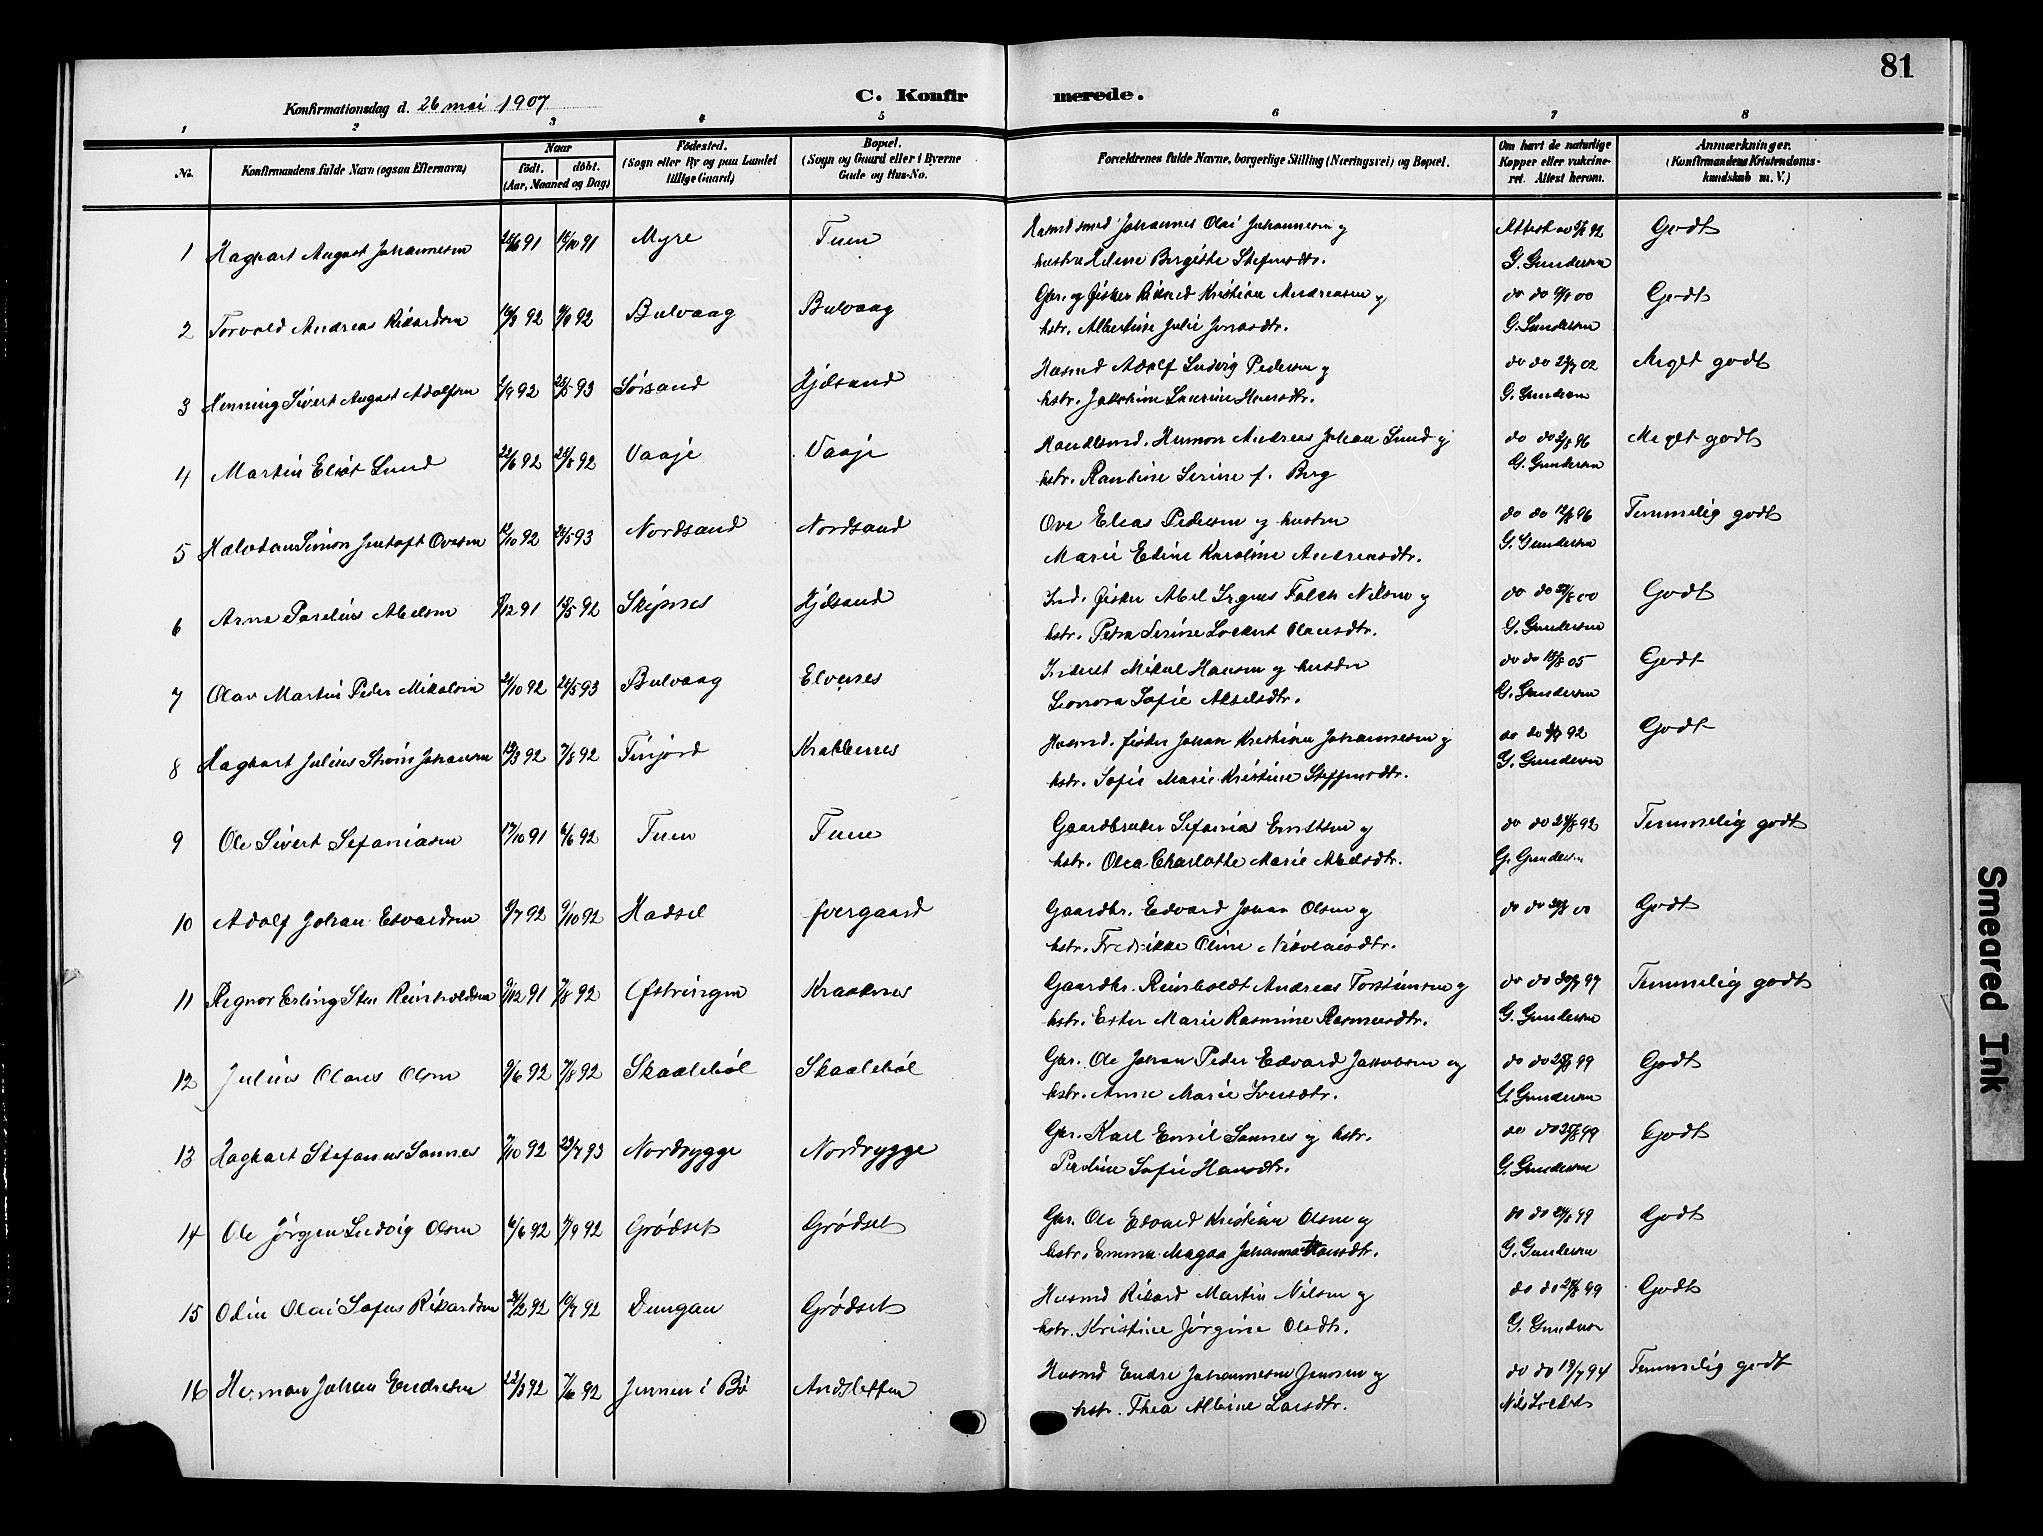 81
Konfirmationsdag d. 26 mai 1907
C. Konfirmerede.
1 2 3 4 5 6 7 8
No. Konfirmandens fulde Navn (ogsaa Efternavn) Naar født. døbt. (Aar, Maaned og Dag) Fødested. (Sogn eller By og paa Landet tillige Gaard) Bopæl. (Sogn og Gaard eller i Byerne Gade og Hus-No. Forældrenes fulde Navne, borgerlige Stilling (Næringsvei) og Bopæl. Om havt de naturlige Kopper eller vakcineret. Attest herom. Anmærkninger. (Konfirmandens Kristendomskundskab m. V.)
1 Hagbart August Johannesen 91 /10 91 Myre Tuen Husmd smed Johannes Olai Johannesen og Attest do 92 Godt
hustru Helene Bergitte Stefensdtr. G. Gundersen
2 Torvald Andreas Rikardsen 92 92 Bulvaag Bulvaag Gbr. og fisker Rikard Kristian Andreasen og do do 00 Godt
hstr. Albertine Julie Jonasdtr. G. Gundersen
3 Henning Sivert August Adolfsen /9 92 /5 93 Sørsand Hjelsand Husmd Adolf Ludvig Pedersen og do do 02 Meget godt
hstr. Jakobine Laurine Hansdtr. G. Gundersen
4 Martin Eliot Lund 22/6 92 /8 92 Vaaje Vaaje Handlsmd. Hemon Andreas Johan Lund og do do 96 Meget godt
hstr. Randine Serine f. Berg G. Gundersen
5 Halvdan Simon Jentoft Ovesen /10 92 /5 93 Nordsand Nordsand Ove Eleas Pedersen og hustru do do 96 Temmelig godt
Marie Edine Karoline Andreasdtr. G. Gundersen
6 Arne Parelius Abelsen /12 91 /5 92 Skipnes Hjelsand Ind. fisker Abel Falch Nilsen og do do 00 Godt
hstr. Petra Serine Lockert Olausdtr. G. Gundersen
7 Olav Martin Peder Mikalsen /10 92 /5 93 Bulvaag Elvenes Inderst Mikal Hansen og hustru do do 05 Godt
Leonora Sofie Akselsdtr. G. Gundersen
8 Hagbart Julius Strøm Johansen /3 92 7/8 92 Finjord Krakbernes Husmd. fisker Johan Kristian Johannesen og do do 92 Godt
hstr. Sofie Marie Kristine Steffensdtr. G. Gundersen
9 Ole Sivert Sefaniasen 17/10 91 6/6 92 Tuen Tuen Gaardbruker Sefanias Enoksen og do do 92 Temmelig godt
hstr. Olea Charlotte Marie Abelsdtr. G. Gundersen
10 Adolf Johan Edvardsen /7 92 9/10 92 Hadsel fvergaard Gaardbr. Edvard Johan Olsen og do do 00 Godt
hstr. Fredrikke Oline Nikolaisdtr.
11 Regnor Erling Sten Reinholdsen /12 91 7/8 92 Østringen Kraaknes Gaardbr. Reinholdt Andreas Torstensen og do do 97 Temmelig godt
hstr. Ester Marie Rasmine Rasmusdtr. G. Gundersen
12 Julius Olaus Olsen 9/6 92 7/8 92 Skaalebøl Skaalebøl Gbr. Ole Johan Peder Edvard Jakobsen og do do 99 Godt
hstr. Anne Marie Iversdtr. G. Gundersen
13 Hagbart Stefanus Sannes 7/10 92 23/7 93 Nordrygge Nordrygge Gbr. Karl Emil Sannes og hstr. do do 99 Godt
Perdine Sofie Hansdtr. G. Gundersen
14 Ole Jørgen Ludvig Olsen 6/6 92 /9 92 Grødset Grødset Gbr. Ole Edvard Kristian Olsen og do do 99 Godt
hstr. Emma Magda Johanna Hansdtr. G. Gundersen
15 Odin Olai Sofus Rikardsen /2 92 10/7 92 Dungan Grødset Husmd Rikard Martin Nilsen og do do 99 Godt
hstr. Kristine Jørgine Olsdtr. G. Gundersen
16 Herman Johan Endresen 22/3 92 7/6 92 Jennen i Bø Andsletten Husmd Endre Johannesen Jensen og do do 19/7 94 Temmelig godt
hstr. Thea Albine Larsdtr. Nils Lockert
Smeared Ink